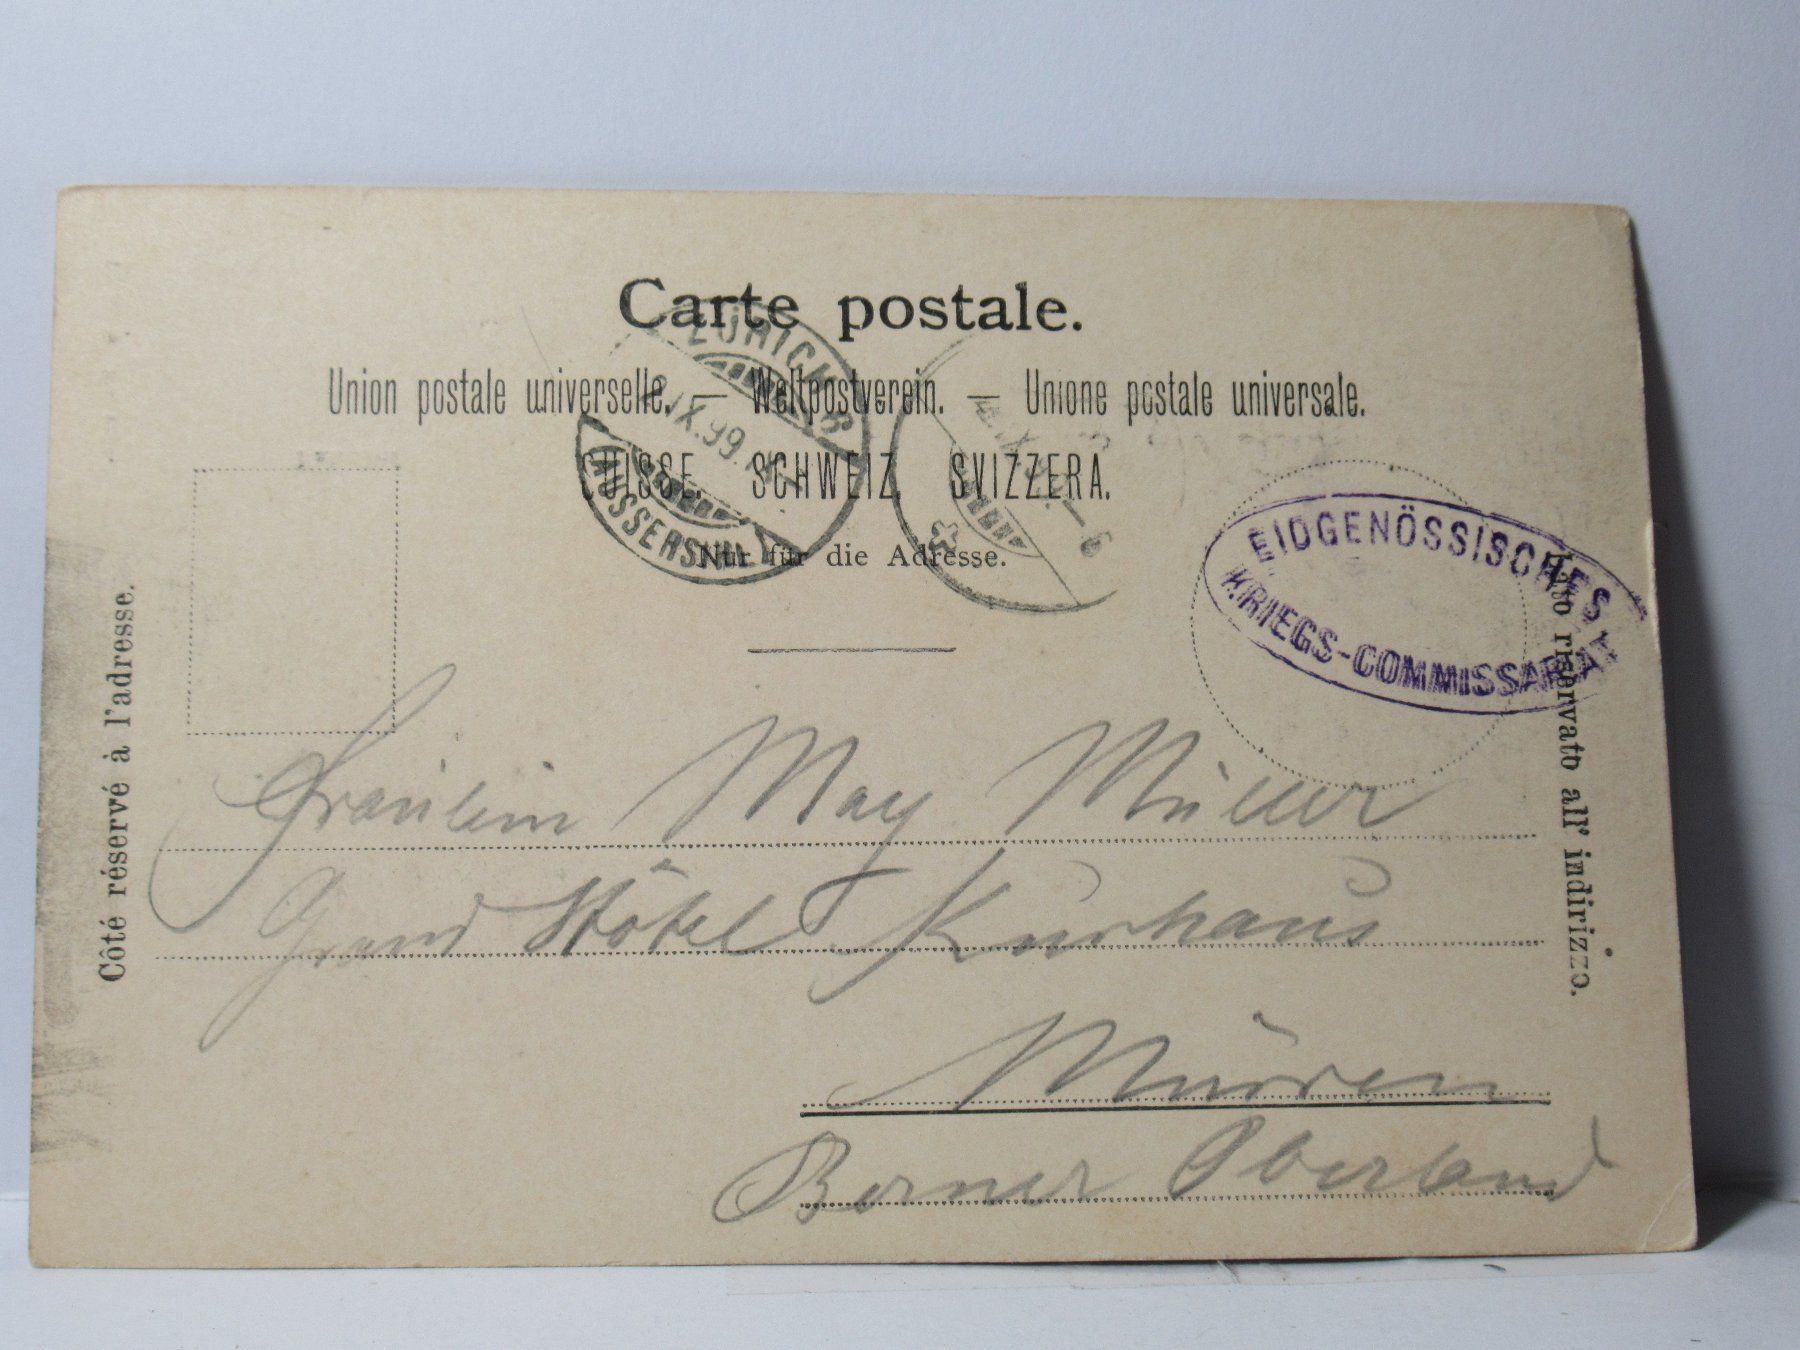 Carte postale.
Union postale universelle. — Weltpostverein. — Unione postale universale.
SUISSE. SCHWEIZ. SVIZZERA.
Nur für die Adresse.
ZÜRICH 6
IX.99.
AUSSERSIHL
6
EIDGENÖSSISCHES
KRIEGS-COMMISSARIAT
Côté réservé à l'adresse.
Lato riservato all' indirizzo.
Fräulein May Müller
Grand Hôtel Kurhaus
Mürren
Berner Oberland